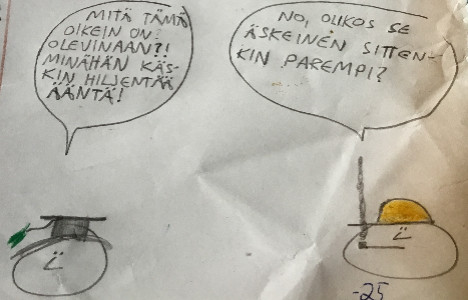 MITÄ TÄMÄ
OIKEIN ON
OLEVINAAN?!
MINÄHÄN KÄS-
KIN HILJENTÄÄ
ÄÄNTÄ!
NO, OLIKOS SE
ÄSKEINEN SITTEN-
KIN PAREMPI?
-25